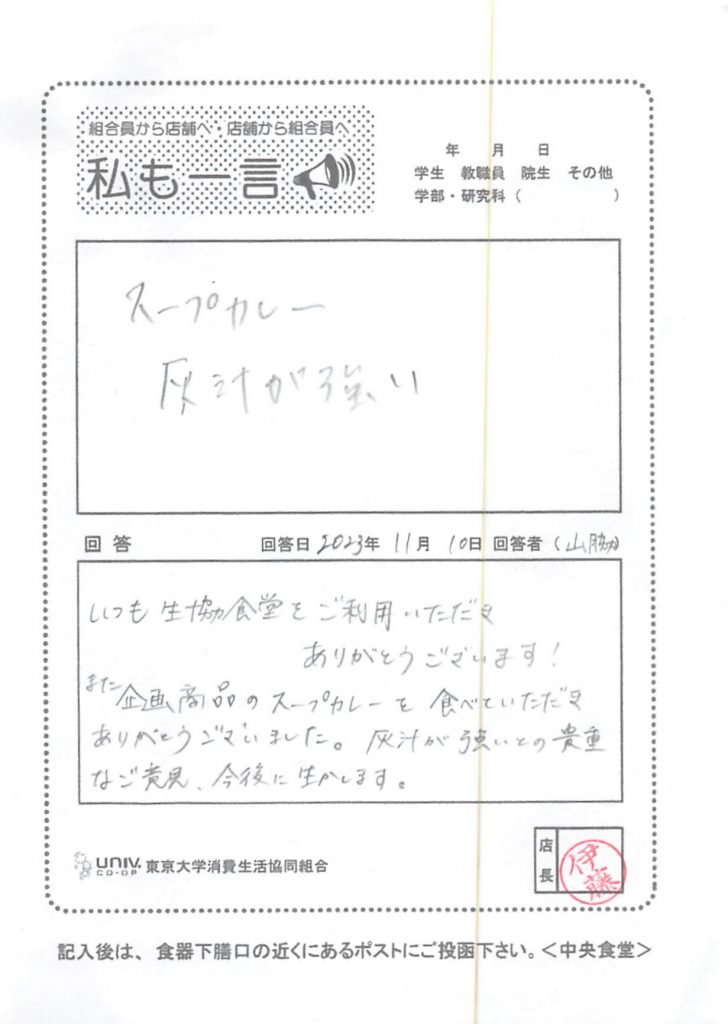 組合員から店舗へ・店舗から組合員へ
私も一言
年 月 日
学生 教職員 院生 その他
学部・研究科（ ）
スープカレー
灰汁が強い
回答 回答日 2023年 11月 10日 回答者（山脇）
いつも生協食堂をご利用いただき
ありがとうございます！
また企画商品のスープカレーを食べていただき
ありがとうございました。灰汁が強いとの貴重
なご意見、今後に生かします。
店長
伊藤
UNIV. CO-OP 東京大学消費生活協同組合
記入後は、食器下膳口の近くにあるポストにご投函下さい。＜中央食堂＞